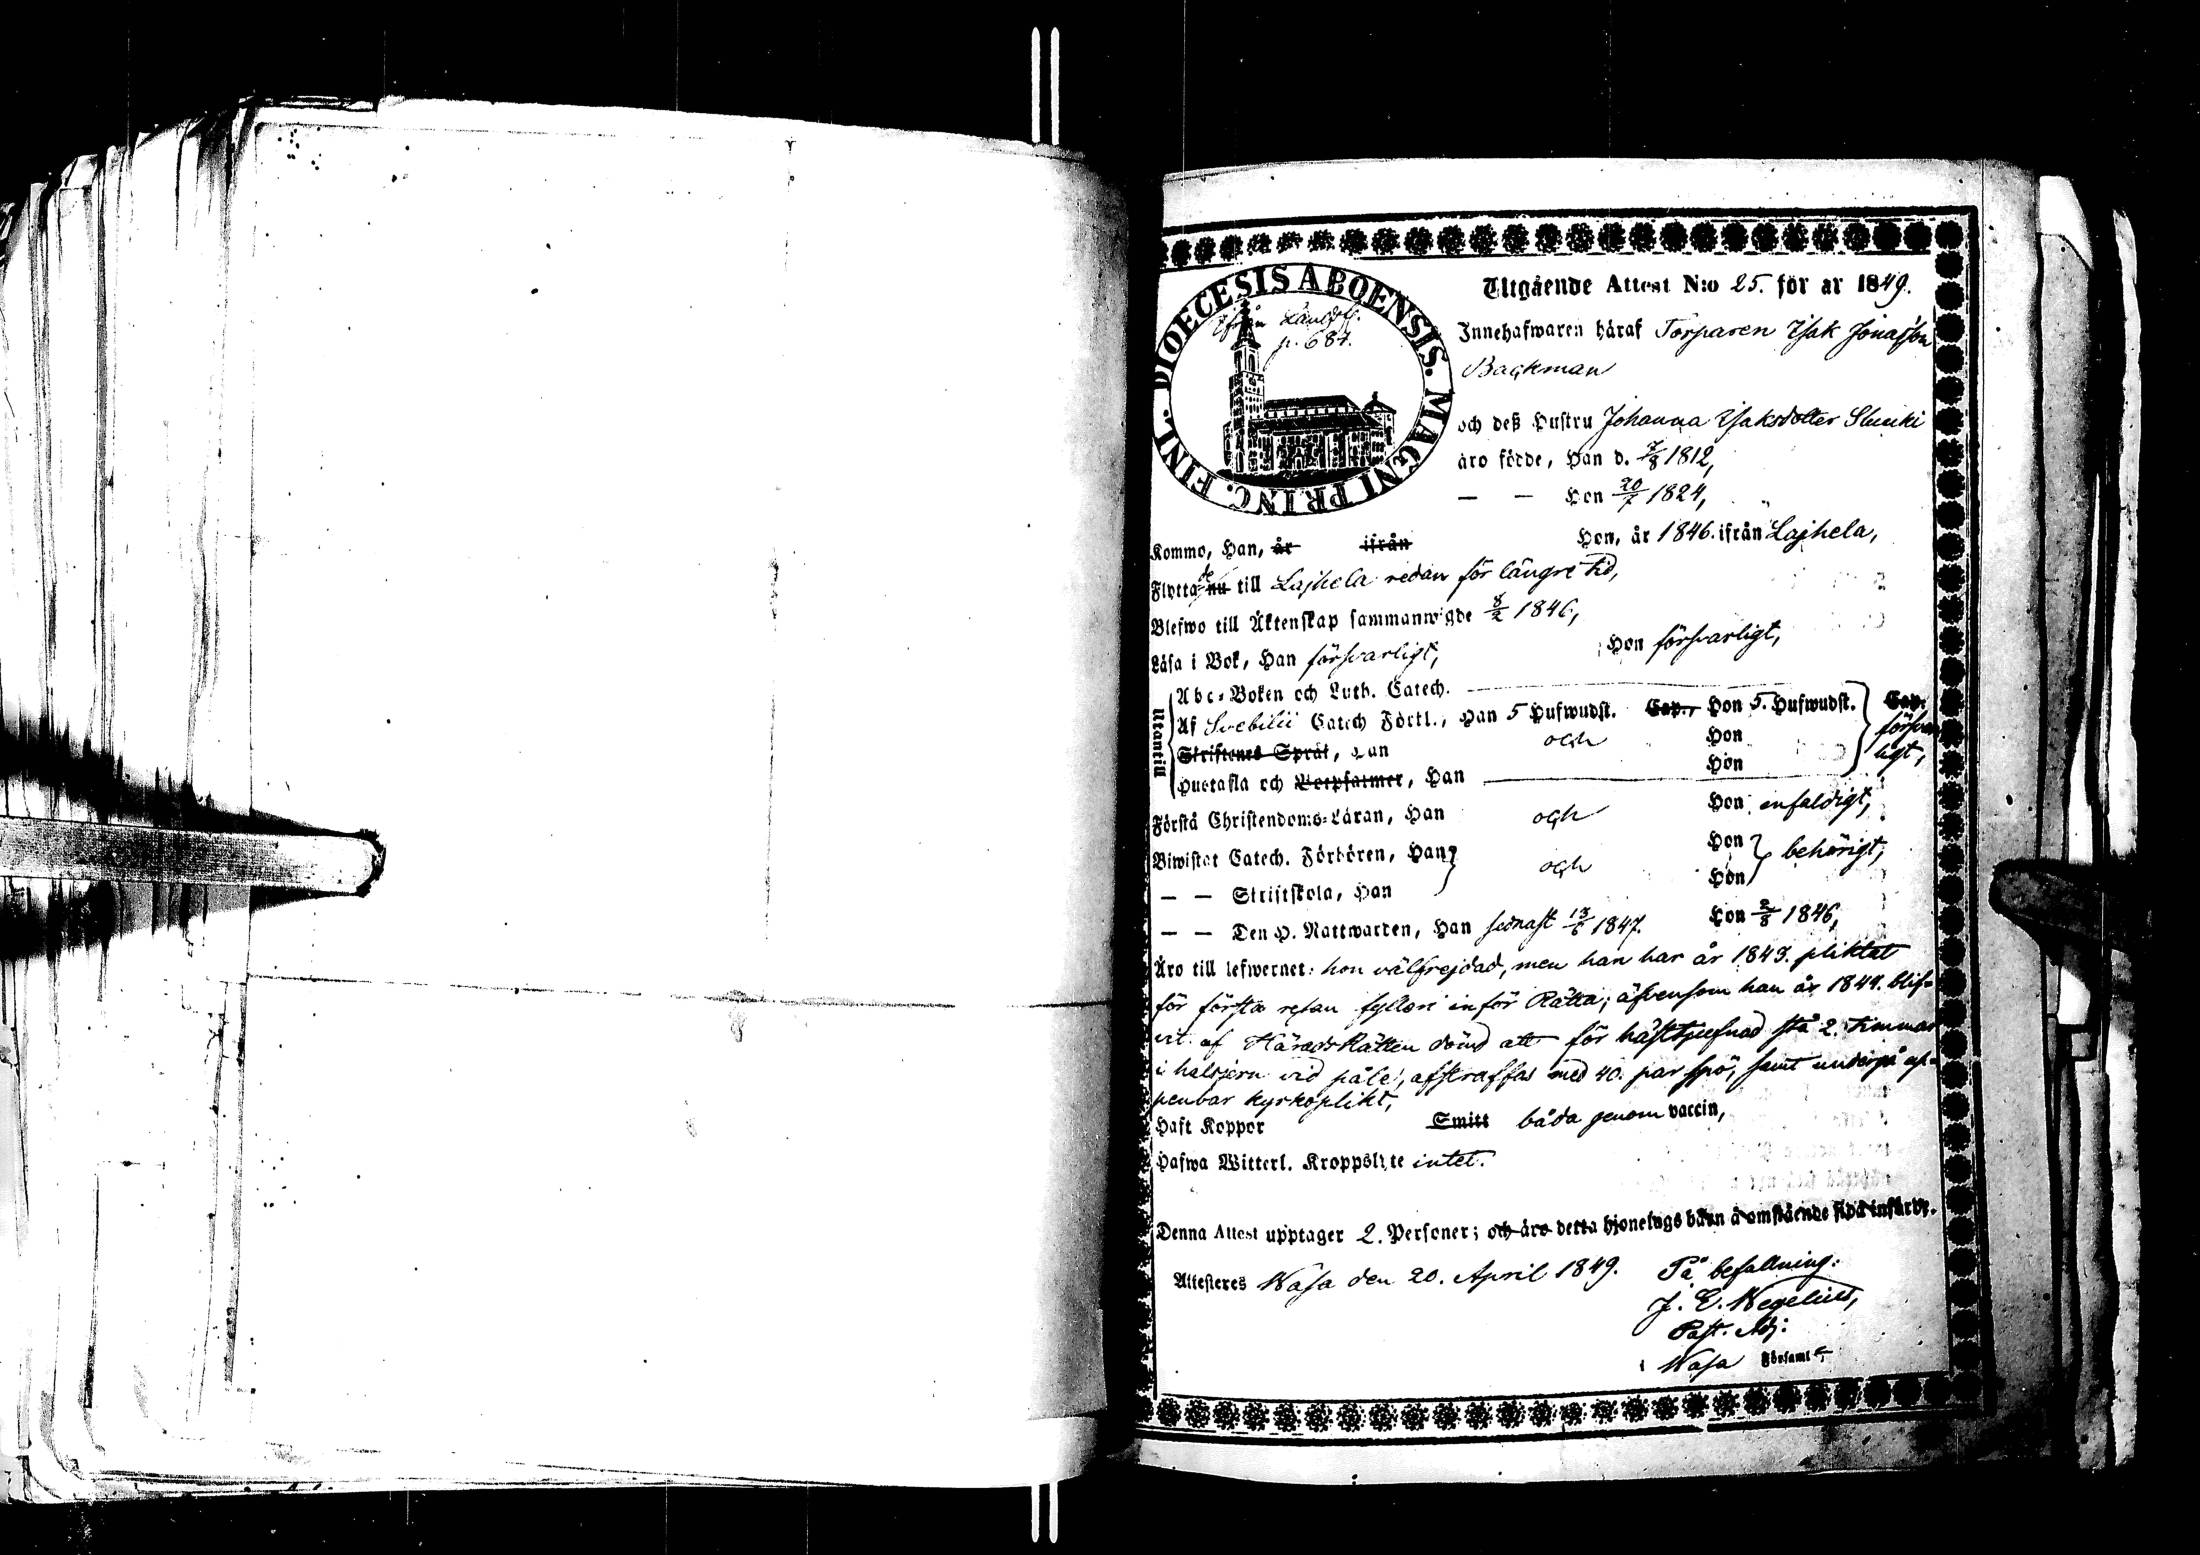 DIOECESIS ABOENSIS. MAGNI PRINC. FINL.
p. 684.
Utgående Attest N:o 25. för år 1849.
Innehafwaren häraf Torparen Isak Jonasson
Backman
och deß Hustru Johanna Isaksdotter Sluuki
äro födde, Han d. 7/8 1812,
— — Hon 20/7 1824,
Kommo, Han, år ifrån Hon, år 1846. ifrån Lajhela,
Flyttade nu till Lajhela redan för längre tid,
Blefwo till Äktenskap sammanwigde 8/2 1846,
Läsa i Bok, Han försvarligt, Hon försvarligt,
Utantill
Abc-Boken och Luth. Catech.
Af Svebilii Catech Förkl., Han 5 Hufwudst. Cap., Hon 5. Hufwudst. Cap.
Skriftenes Språk, Han och Hon försvar
Hustafla och Botpsalmer, Han Hon ligt,
Förstå Christendoms-Läran, Han och Hon enfaldigt,
Biwistat Catech. Förhören, Han och Hon behörigt,
— — Skriftskola, Han Hon
— — Den H. Nattwarden, Han sednast 13/6 1847. Hon 2/8 1846,
Äro till lefwernet: hon välfrejdad, men han har år 1843. pliktat
för första resan fylleri inför Rätta; äfvensom han år 1844. blif-
vit af HäradsRätten dömd att för häststjufnad stå 2. timmar
i halsjern vid påle, afstraffas med 40. par spö, samt undergå op-
penbar kyrkoplikt,
Haft Koppor Smitt båda genom vaccin,
Hafwa Witterl. Kroppslyte intet.
Denna Attest upptager 2. Personer; och äro detta hjonelags barn å omstående sida införde.
Attesteres Wasa den 20. April 1849. På befallning:
J. E. Wegelius,
Past. Adj:
i Wasa Församl.